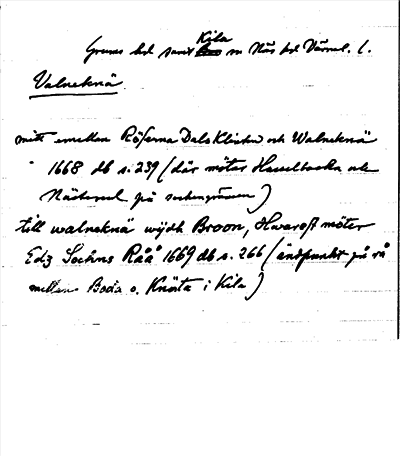 Kila
Grums hd samt m Näs hd Värml. l.
Valneknä
mitt emellan Röserna Dals Klisten och Walneknä
1668 db s. 239 (där möter Hasselbacka och
Näs på sockengränsen)
till walneknä wijdh Broon, Hwarest möter
Edz Sochns Råå 1669 db s. 266 (ändpunkt på rå
mellan Boda o. Knöta i Kila)